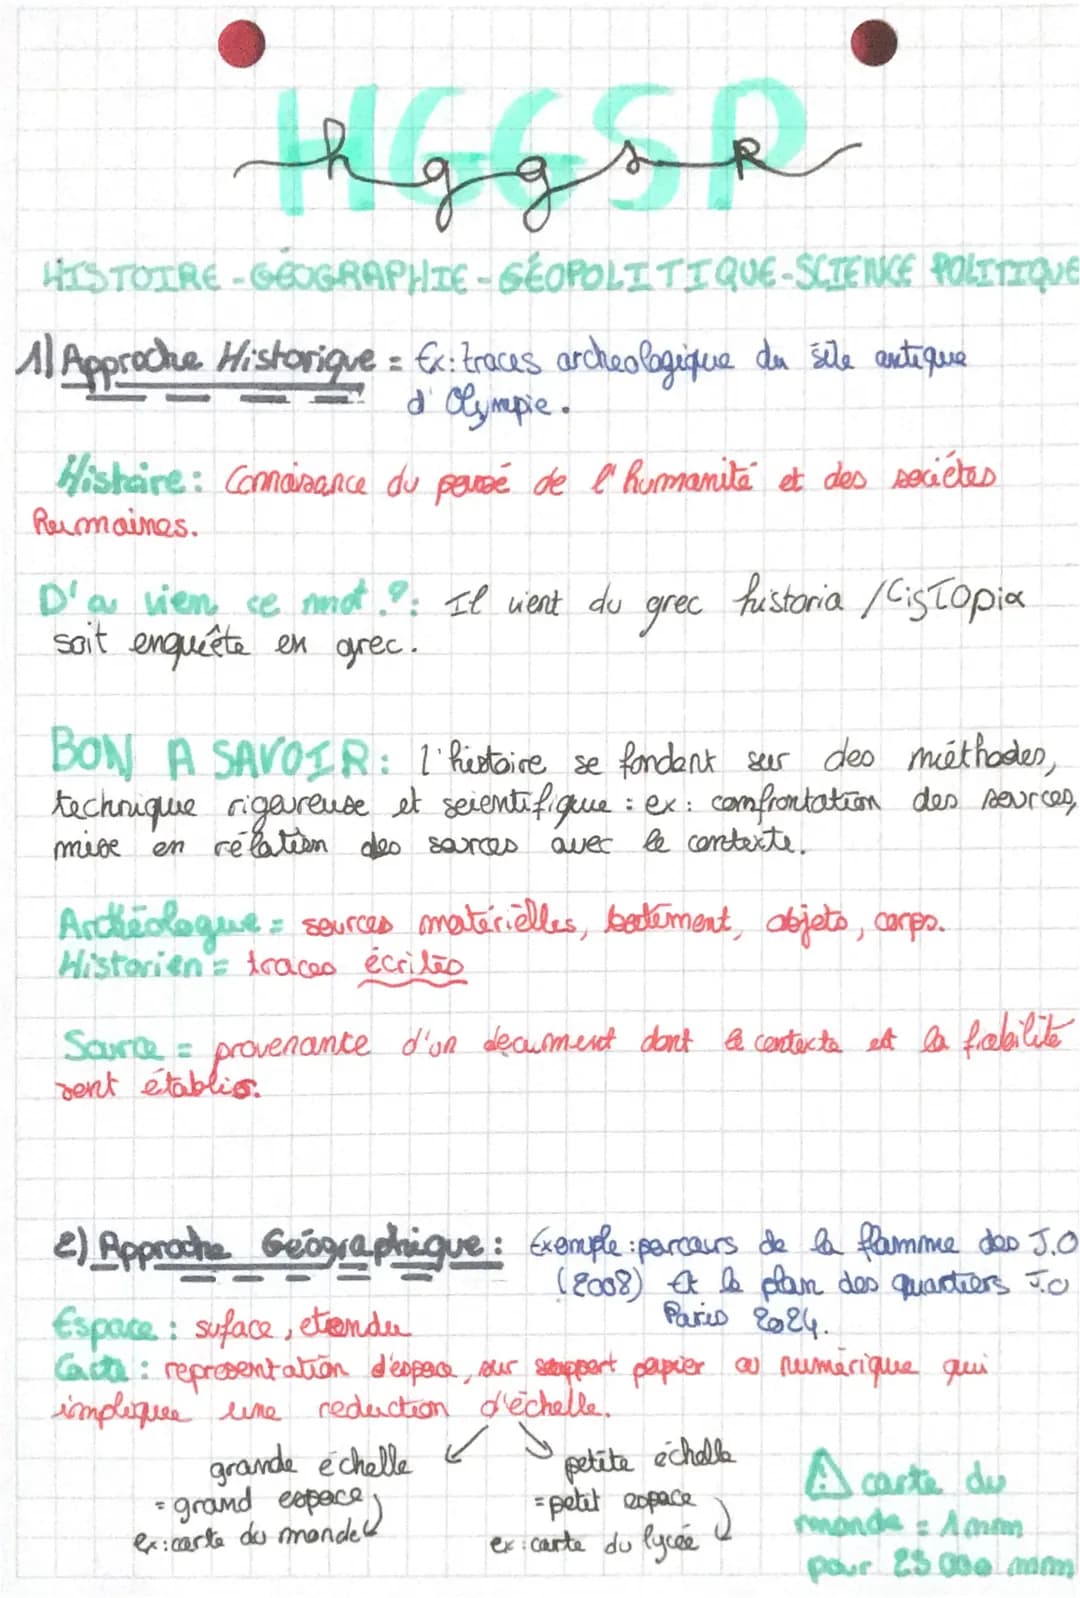 HGGSP
hggsp
HISTOIRE-GÉOGRAPHIE-GÉOPOLITIQUE-SCIENCE POLITIQUE
1) Approche Historique = Ex: traces archeologique du site antique
d'Olympie.
Histoire: Connaisance du passé de l'humanité et des sociétes
humaines.
D'ou vien ce mot ?: Il vient du grec historia /ἱστορία
soit enquête en grec.
BON A SAVOIR: l'histoire se fondent sur des méthodes,
technique rigeureuse et scientifique : ex: comfrontation des sources,
mise en rélation des sources avec le contexte.
Archéologue = sources matérielles, batement, objets, corps.
Historien = traces écrites
Source = provenance d'un document dont le contexte et la fiabilité
sont établis.
2) Approche Géographique : Exemple : parcours de la flamme des J.O
(2008) Et le plan des quartiers J.O
Paris 2024.
Espace : suface, etendu
Carte : representation d'espace, sur support papier ou numérique qui
implique une reduction d'échelle.
grande échelle petite échelle
= grand espace = petit espace
ex: carte du monde ex: carte du lycée
⚠ carte du
monde = 1mm
pour 25 000 mm